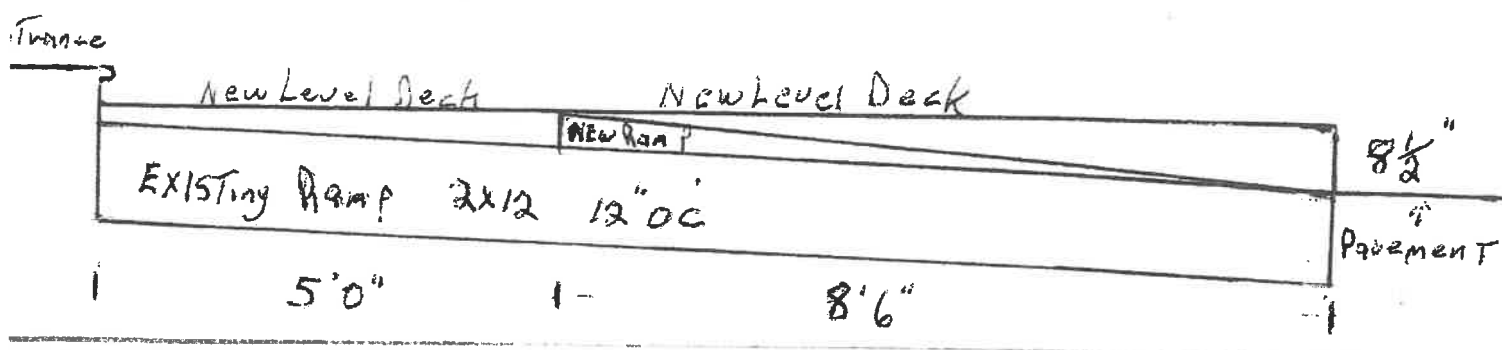 Trance
New Level Deck New Level Deck
NEW Ramp
8 1/2"
EXISTing Ramp 2x12 12" OC
Pavement
5'0" 8'6"